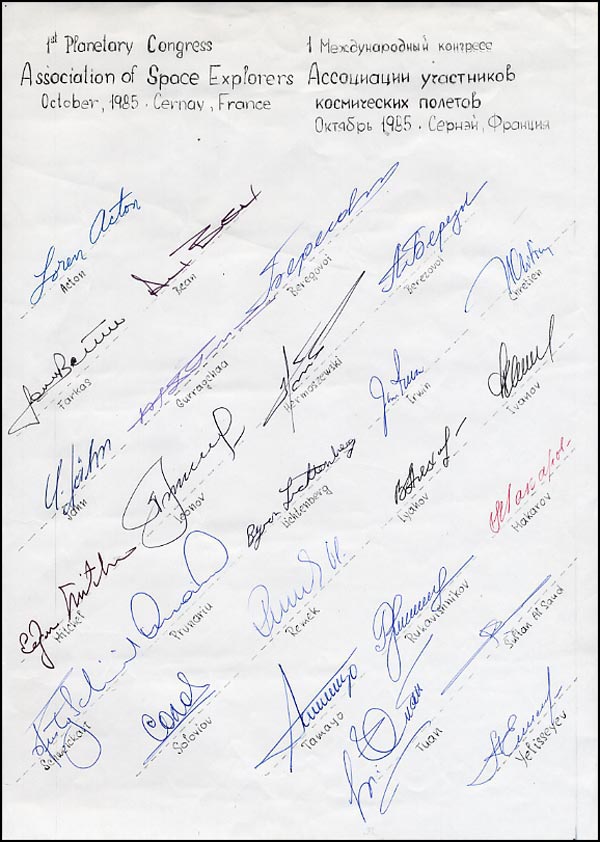 1st Planetary Congress
Association of Space Explorers
October, 1985 · Cernay, France
1 Международный конгресс
Ассоциации участников
космических полетов
Октябрь 1985 · Сернэй, Франция
Loren Acton
Acton
Bean
Beregovoi
Berezovoi
Chretien
Farkas
Gurragchaa
Hermaszewski
Jim Irwin
Irwin
Ivanov
Jähn
Jahn
Leonov
Byron Lichtenberg
Lichtenberg
Макаров
Makarov
Mitchel
Prunariu
Remek
Rukavishnikov
Sultan Al Saud
Schweickart
Soloviov
Tamayo
Tuan
Yelisseyev